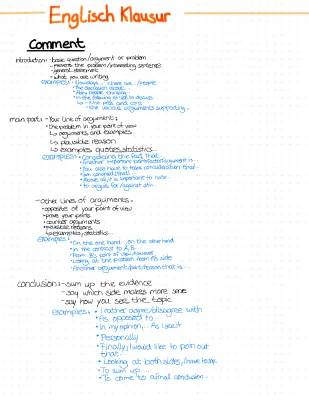 Englisch Klausur
Comment
introduction: -basic question/argument or problem
-present the problem/interesting sentences
-general statement
-what you are writing
examples: •Nowadays... there are.../people
•The discussion about...
•Many people consider...
•In the following I want to discuss
↳ - the pros and cons
- the various arguments supporting...
main part: - Your line of arguments:
•the problem in your point of view
↳ arguments and examples
↳ plausible reason
↳ examples, quotes, statistics...
examples: •Considering the fact that...
•Another important point/factor/argument is...
•You also have to take consideration that
•I am convinced that...
•Above all, it is important to note
•to argue for/against sth.
-Other lines of arguments:
•opposite of your point of view
•prove your points
•counter arguments
•plausible reasons
•examples, statistics...
examples: •On the one hand... on the other hand
•In the contrast to A, B...
•From B's point of view, however
•Looking at the problem from A's side
•Another argument/point/reason that is...
conclusion: -sum up the evidence
-say which side makes more sense
-say how you see the topic
examples: •I rather agree/disagree with
•As opposed to
•In my opinion,... As I see it
•Personally
•Finally, I would like to point out that...
•Looking at both sides, I have to say...
•To sum up...
•To come to a final conclusion...